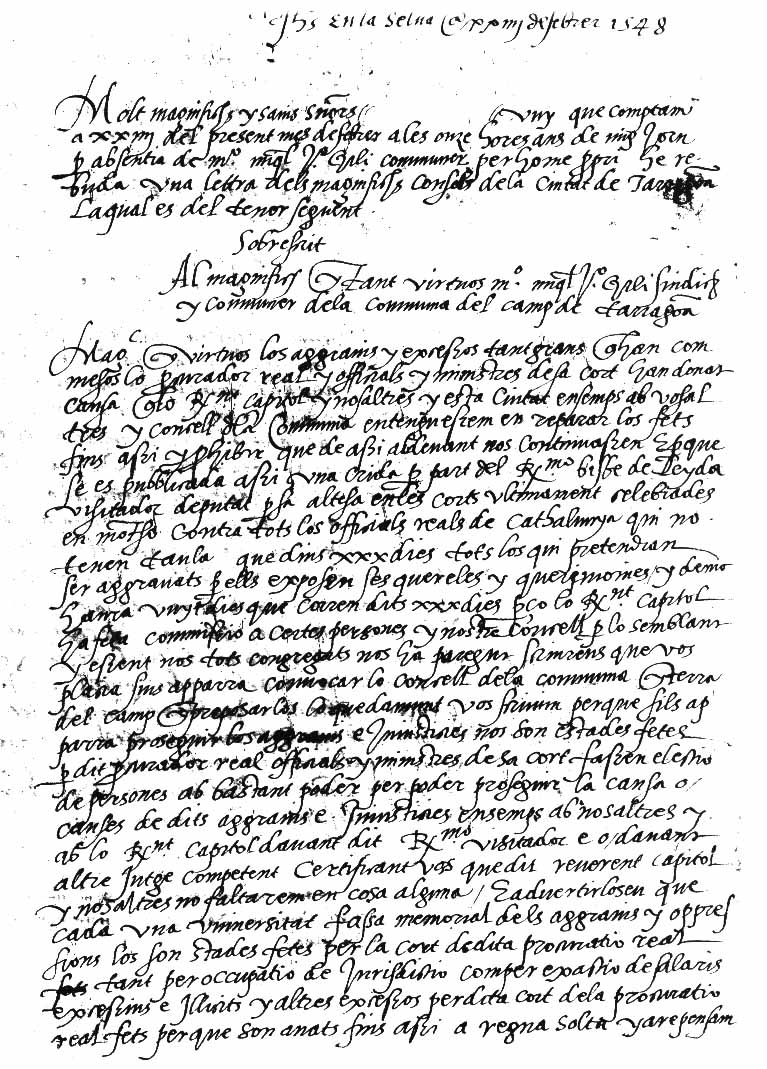 Jhs En la Selva a xxiiij de febrer 1548
Molt magnifichs y savis Sñors // vuy que comptam
a xxiiij del present mes de febrer a les onze hores ans de mig Jorn
p absentia de mº miql Jº communer per home ppri he re-
buda una lettra dels magnifichs Consols dela Ciutat de Tarragona
La qual es del tenor seguent
Sobrescrit
Al magnifich y tant virtuos mº miql Jº sindich
y Cõmuner dela Communa del camp de tarragoa
Magch y virtuos los aggravis y excessos tant grans q han com
mesos lo pcurador real y officials y ministres de sa cort han donat
causa q lo Rnt capitol y nosaltres y esta Ciutat ensemps ab vosal
tres y Concell dela Communa entenguessem en reparar los fets
fins assi y phibir que de assi abdevant nos continuassen E perque
se es publicada assi una crida p part del Rxmo bisbe de Leyda
visitador deputat p sa altesa en les corts ultimament celebrades
en motso Contra tots los officials reals de Cathalunya qui no
tenen taula que dins xxx dies tots los qui pretendran
ser aggravats p ells exposen ses quereles y querimonies y demo
haura vuyt dies que corren dits xxx dies pço lo Rnt Capitol
ha feta commissio a certes persones y nostre Concell p lo semblant
y essent nos tots congregats nos ha paregut scriureus que vos
placia sius apparra convocar lo concell dela communa y terra
del camp y preposarlos lo quedamunt vos scrivim perque sils ap
parra proseguir los aggravis e Iniusticies nos son estades fetes
p dit pcurador real officials y ministres de sa cort fassen electio
de persones ab bastant poder per poder proseguir la causa o/
causes de dits aggravis e Iniusticies ensemps ab nosaltres y
ab lo Rnt Capitol davant dit Rxmo visitador e o/ davant
altre Jutge competent Certificant vos quedit reverent capitol
y nosaltres no faltarem en cosa alguna / E advertirloseu que
cada una universitat fassa memorial dels aggravis y oppres
sions los son stades fetes per la cort dedita procuratio real
fets tant per occupatio de Jurisdictio com per exactio de salaris
excessius e Illicits y altres excessos perdita cort dela procuratio
real fets perque son anats fins assi a regna solta y are pensam